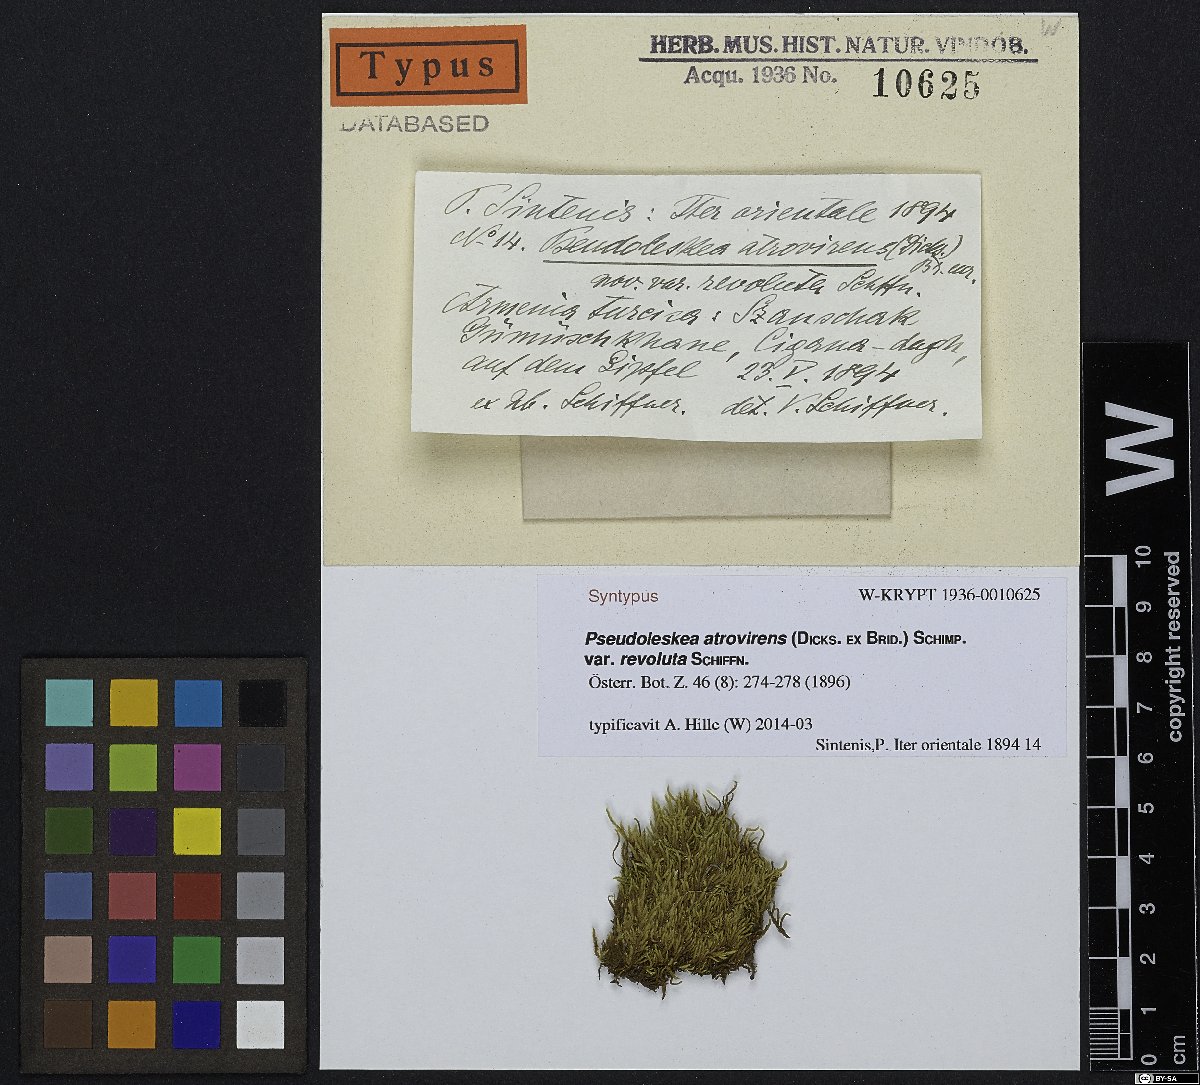 Typus
DATABASED
HERB. MUS. HIST. NATUR. VINDOB.
Acqu. 1936 No. 10625
W
P. Sintenis: Iter orientale 1894
No 14. Pseudoleskea atrovirens (Dicks.)
Br. eur.
nov. var. revoluta Schffn.
Armenia turcica: Szanschak
Gümüschkhane, Ciganа-dagh,
auf dem Gipfel 23. V. 1894
ex hb. Schiffner. det. V. Schiffner.
Syntypus W-KRYPT 1936-0010625
Pseudoleskea atrovirens (DICKS. EX BRID.) SCHIMP.
var. revoluta SCHIFFN.
Österr. Bot. Z. 46 (8): 274-278 (1896)
typificavit A. Hille (W) 2014-03
Sintenis,P. Iter orientale 1894 14
W
10
9
8
7
6
5
4
3
2
1
0
cm
copyright reserved
cc BY-SA